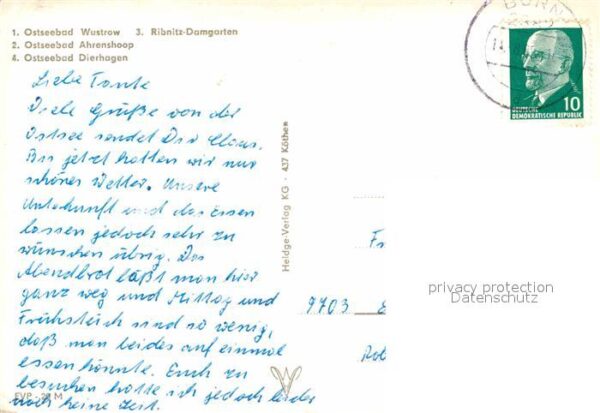 1. Ostseebad Wustrow 3. Ribnitz-Damgarten
2. Ostseebad Ahrenshoop
4. Ostseebad Dierhagen
Liebe Tante
Viele Grüße von der
Ostsee sendet Dir Claus.
Bis jetzt hatten wir nur
schönes Wetter. Unsere
Unterkunft und das Essen
lassen jedoch sehr zu
wünschen übrig. Das
Abendbrot läßt man hier
ganz weg und Mittag und
Frühstück sind so wenig,
daß man beides auf einmal
essen könnte. Euch zu
besuchen hatte ich jedoch leider
noch keine Zeit.
EVP - 20 M
Heldge-Verlag KG · 437 Köthen
BORN
10
DEUTSCHE
DEMOKRATISCHE REPUBLIK
Fr
9703
privacy protection
Datenschutz